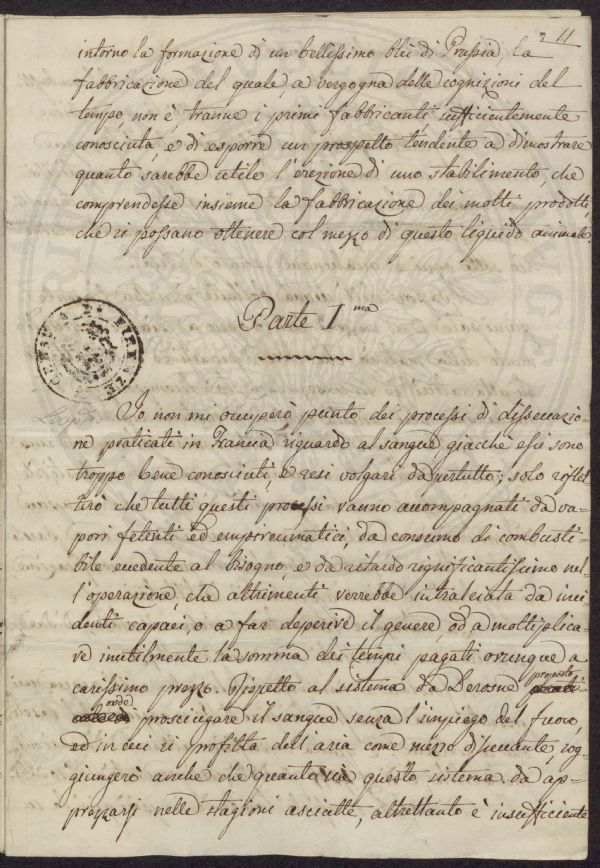 11
intorno la formazione di un bellissimo blù di Prussia, la
fabbricazione del quale, a vergogna delle cognizioni del
tempo, non è, tranne i primi fabbricanti, sufficientemente
conosciuta, e di esporre un prospetto tendente a dimostrare
quanto sarebbe utile l'erezione di uno stabilimento, che
comprendesse insieme la fabbricazione dei molti prodotti,
che si possano ottenere col mezzo di questo liquido animale.
Parte I.ma
Io non mi occuperò punto dei processi di disseccazio-
ne praticati in Francia riguardo al sangue, giacchè essi sono
troppo bene conosciuti, e resi volgari dapertutto; solo riflet-
tirò che tutti questi processi vanno accompagnati da va-
pori fetenti ed empireumatici, da consumo di combusti-
bile eccedente al bisogno, e da ritardo significantissimo nel-
l'operazione, che altrimenti verrebbe intralciata da inci
denti capaci, o a far deperire il genere, od a moltiplica-
re inutilmente la somma dei tempi pagati ovunque a
carissimo prezzo. Rispetto al sistema da Derosne proposto
onde prosciugare il sangue senza l'impiego del fuoco,
ed in cui si profitta dell'aria come mezzo disseccante, sog-
giungerò anche che quanto è questo sistema da ap-
prezzarsi nelle stagioni asciutte, altrettanto è insufficiente